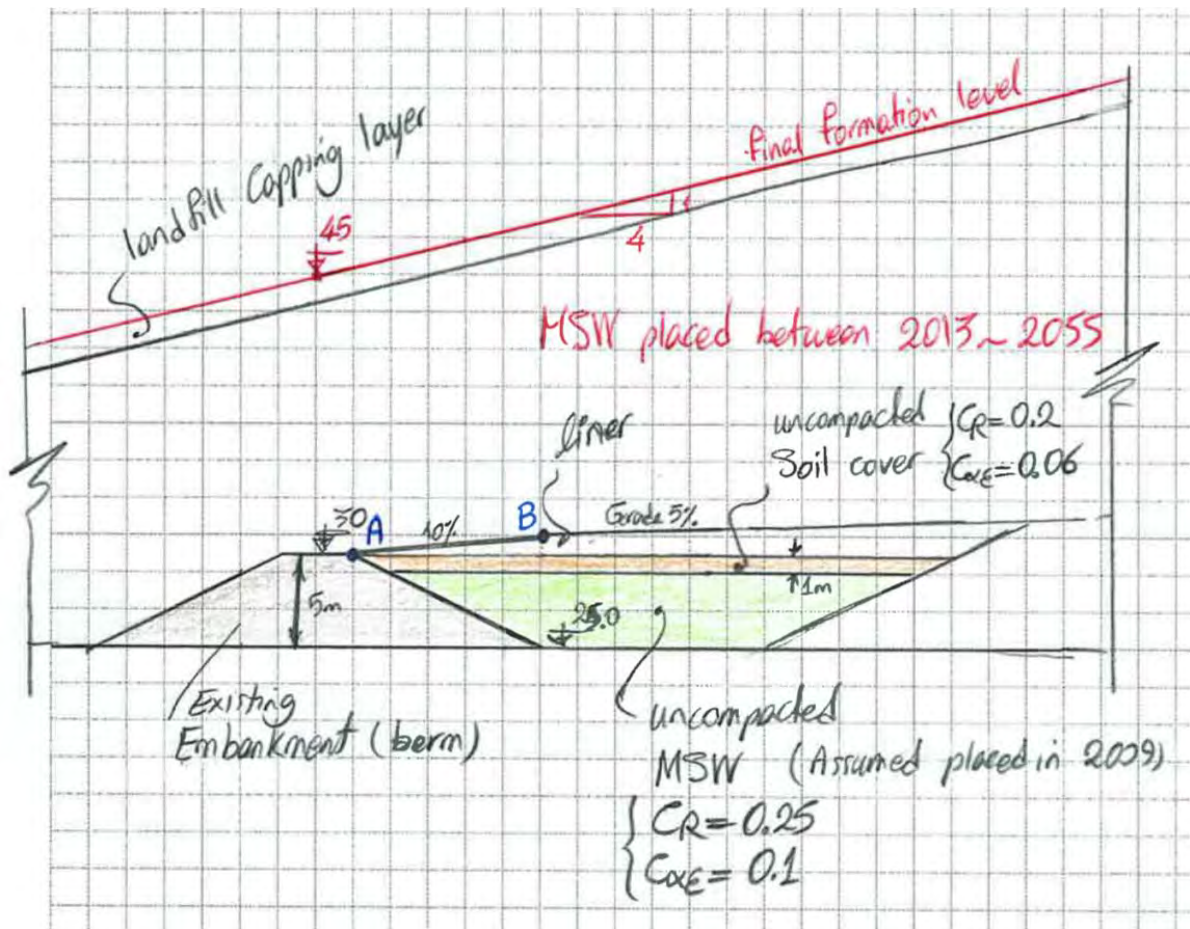 landfill Capping layer
final formation level
45
1
4
MSW placed between 2013~2055
liner
uncompacted
Soil cover
CR=0.2
Cαε=0.06
30
A
10%
B
Grade 5%
5m
1m
Existing
Embankment (berm)
uncompacted
MSW (Assumed placed in 2009)
CR=0.25
Cαε=0.1